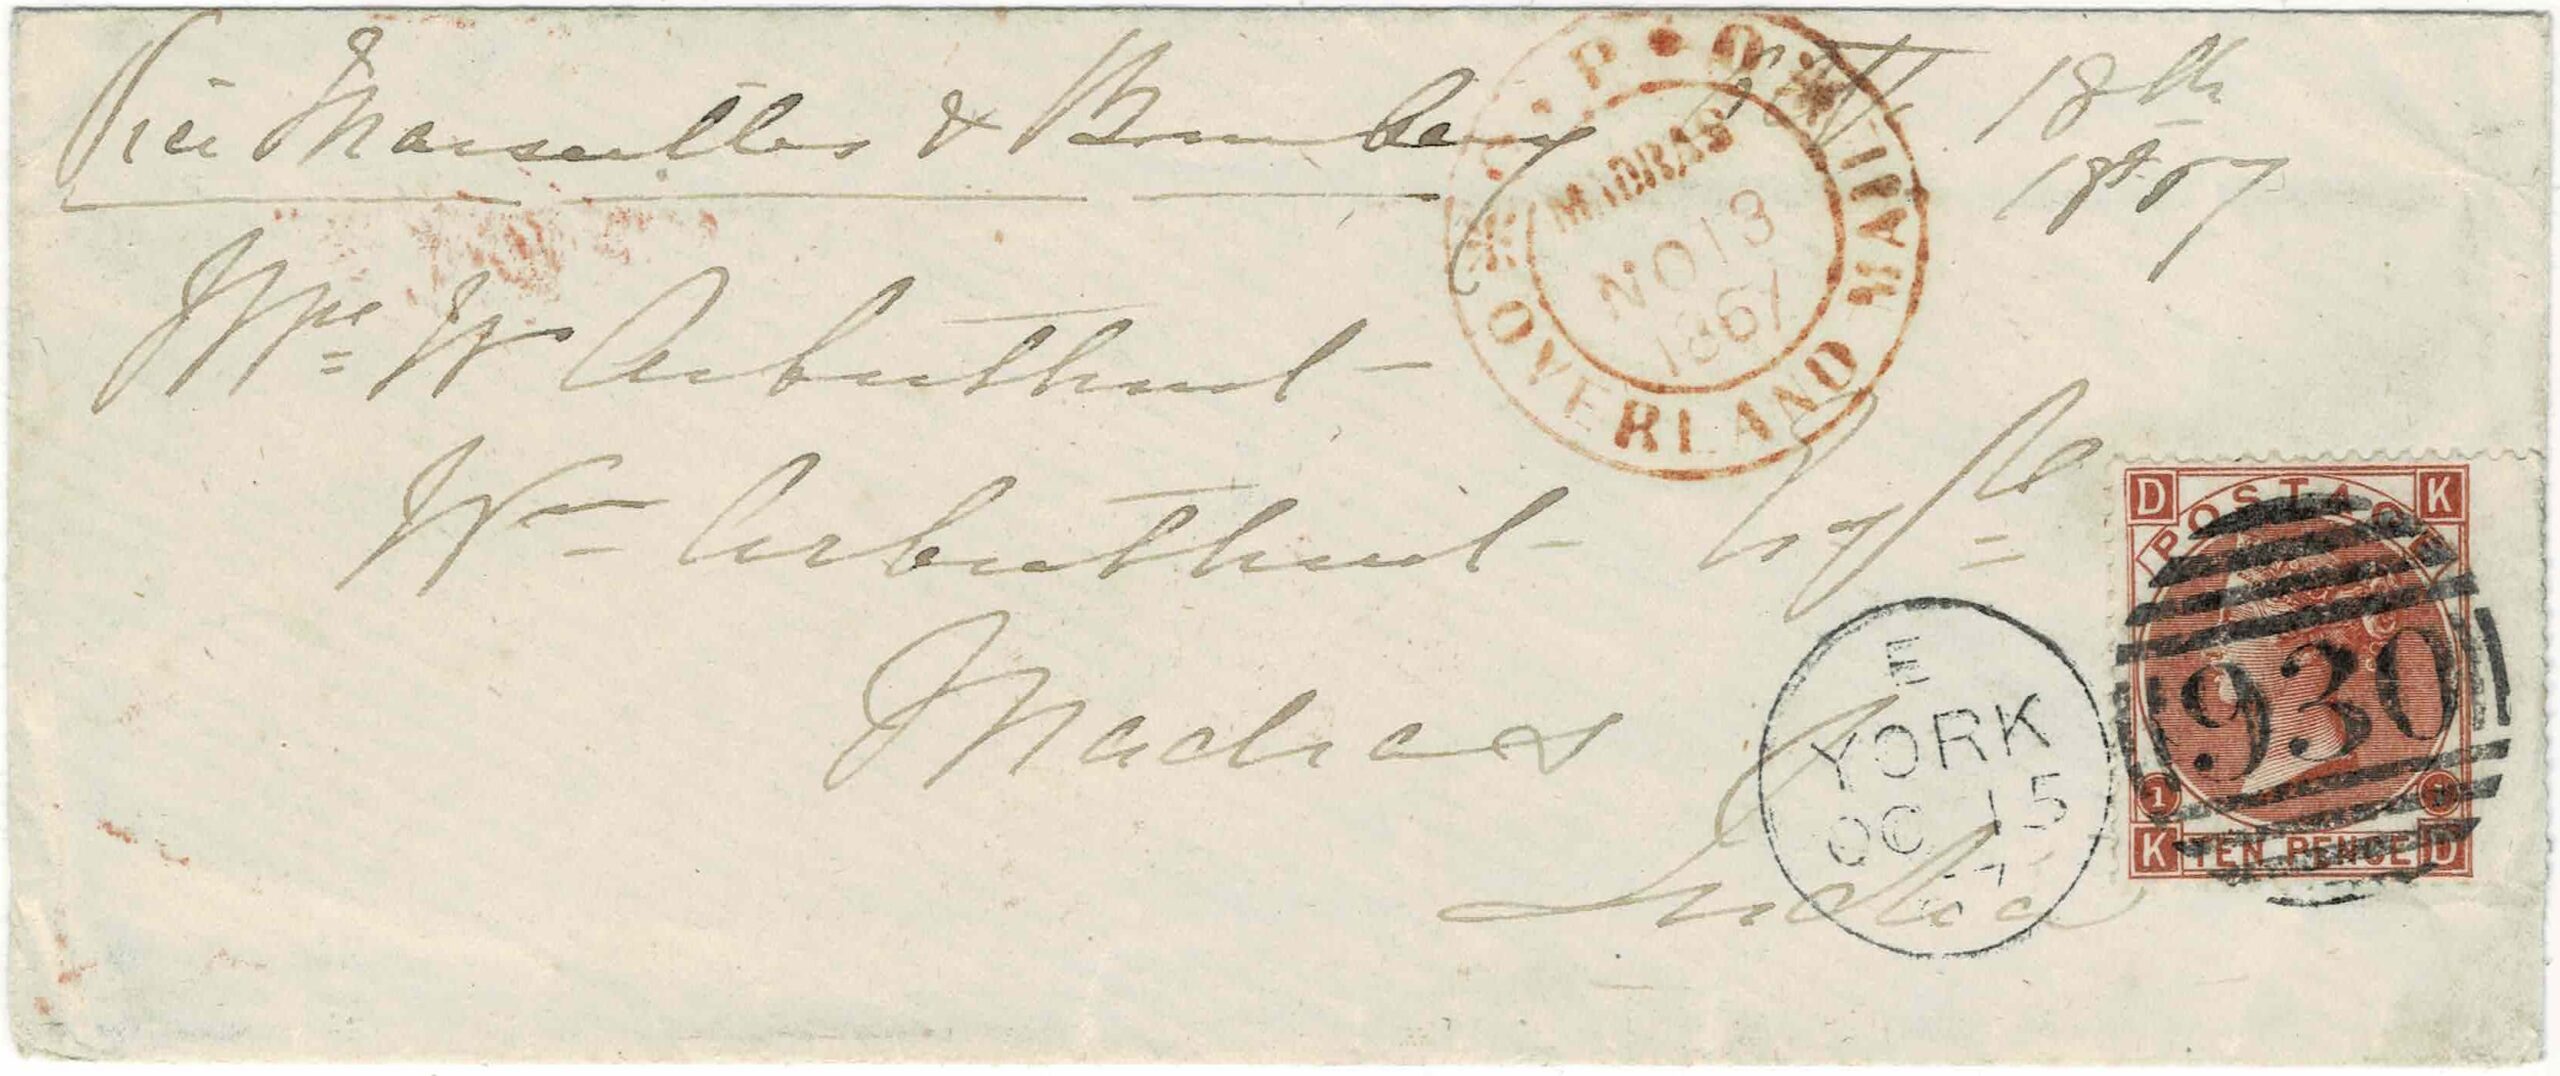 Via Marseilles & Bombay Octr 18th
1867
G.P.O.
MADRAS
NO 13
1867
OVERLAND MAIL
Mrs W Arbuthnot
Wm Arbuthnot Esqre
Madras
India
E
YORK
OC 15
67
D POSTAGE K
930
1 1
K TEN PENCE D